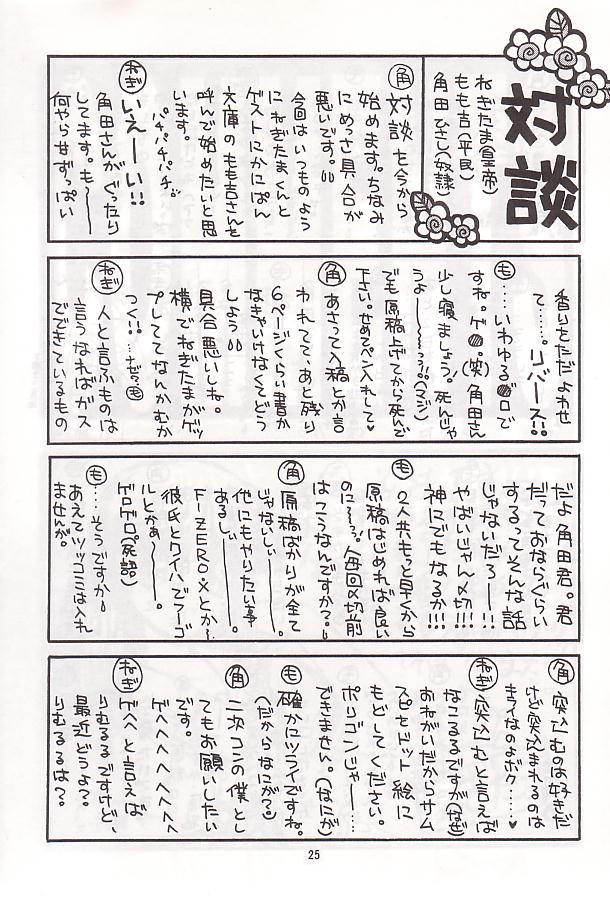 対談
ねぎたま(皇帝)
もも吉(平民)
角田ひさし(奴隷)
角 対談を今から
始めます。ちなみ
にめっさ具合が
悪いです。
今回はいつものよう
にねぎたまくんと
ゲストにかにぱん
文庫のもも吉さんを
呼んで始めたいと思
います。
パチパチパチ。
ねぎ いえーい!!
角田さんがぐったり
してます。も〜
何やらせずっぱい
香りただよわせ
て……。リバース!!
も …いわゆる●ロで
すね。ゲ●。(笑)角田さん
少し寝ましょう。死んじゃ
うよ〜〜っ!!(マジ)
でも原稿上げてから死んで
下さい。せめてペン入れして♥
角 あさって入稿とか言
われてて、あと残り
6ページくらい書か
なきゃいけなくてどう
しよう
具合悪いしね。
横でねぎたまがゲッ
プしててなんかむか
つく!! …ナゼっも
ねぎ 人と言ふものは
言うなればガス
でできているもの
だよ角田君。君
だっておならぐらい
するってそんな話
じゃないだろー!!
やばいじゃん〆切!!
神にでもなるか!!!
も 2人共もっと早くから
原稿はじめれば良い
のに〜っ!!毎回〆切前
はこうなんですか?
角 原稿ばかりが全て
じゃないしぃ――。
他にもやりたい事
あるしぃ――。
F-ZERO×とか〜
彼氏とワイハでフーゴ
ルとかぁ――。
ゲロゲロ(死語)
も ……そうですか
あえてツッコミは入れ
ませんが。
角 突込むのは好きだ
けど突込まれるのは
キライなのよボク……♥
ねぎ 突込むと言えば
なこるるですが(なぜ)
おねがいだからサム
スピをドット絵に
もどしてください。
ポリゴンじゃ――…
できません。(なにが)
も 確かにツライですね。
(だからなにが?)
角 二次コンの僕とし
てもお願いしたい
です。
ゲヘヘヘヘヘヘヘ
ねぎ ゲヘヘと言えば
りむるるですけど、
最近どうよ?。
りむるるは?。
25